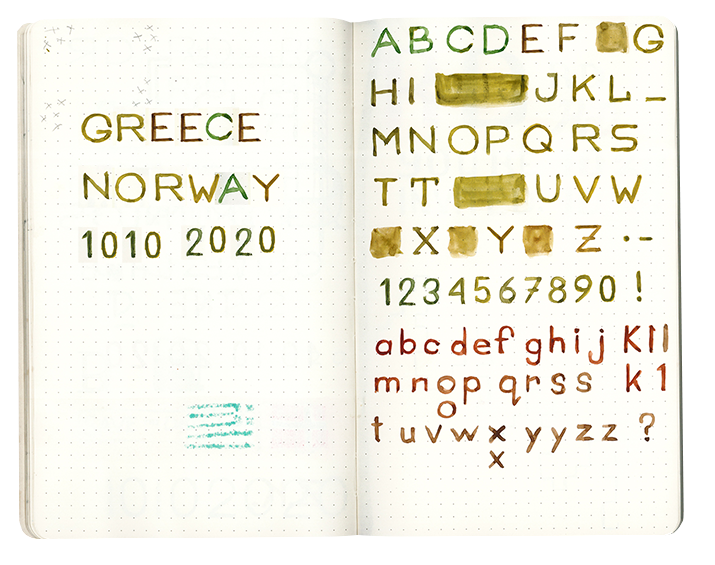 GREECE
NORWAY
1010 2020
ABCDEF G
HI JKL_
MNOPQRS
TT UVW
X Y Z ·-
1234567890!
abcdefghij Kll
mnopqrss k1
o
tuvwxyyzz ?
x